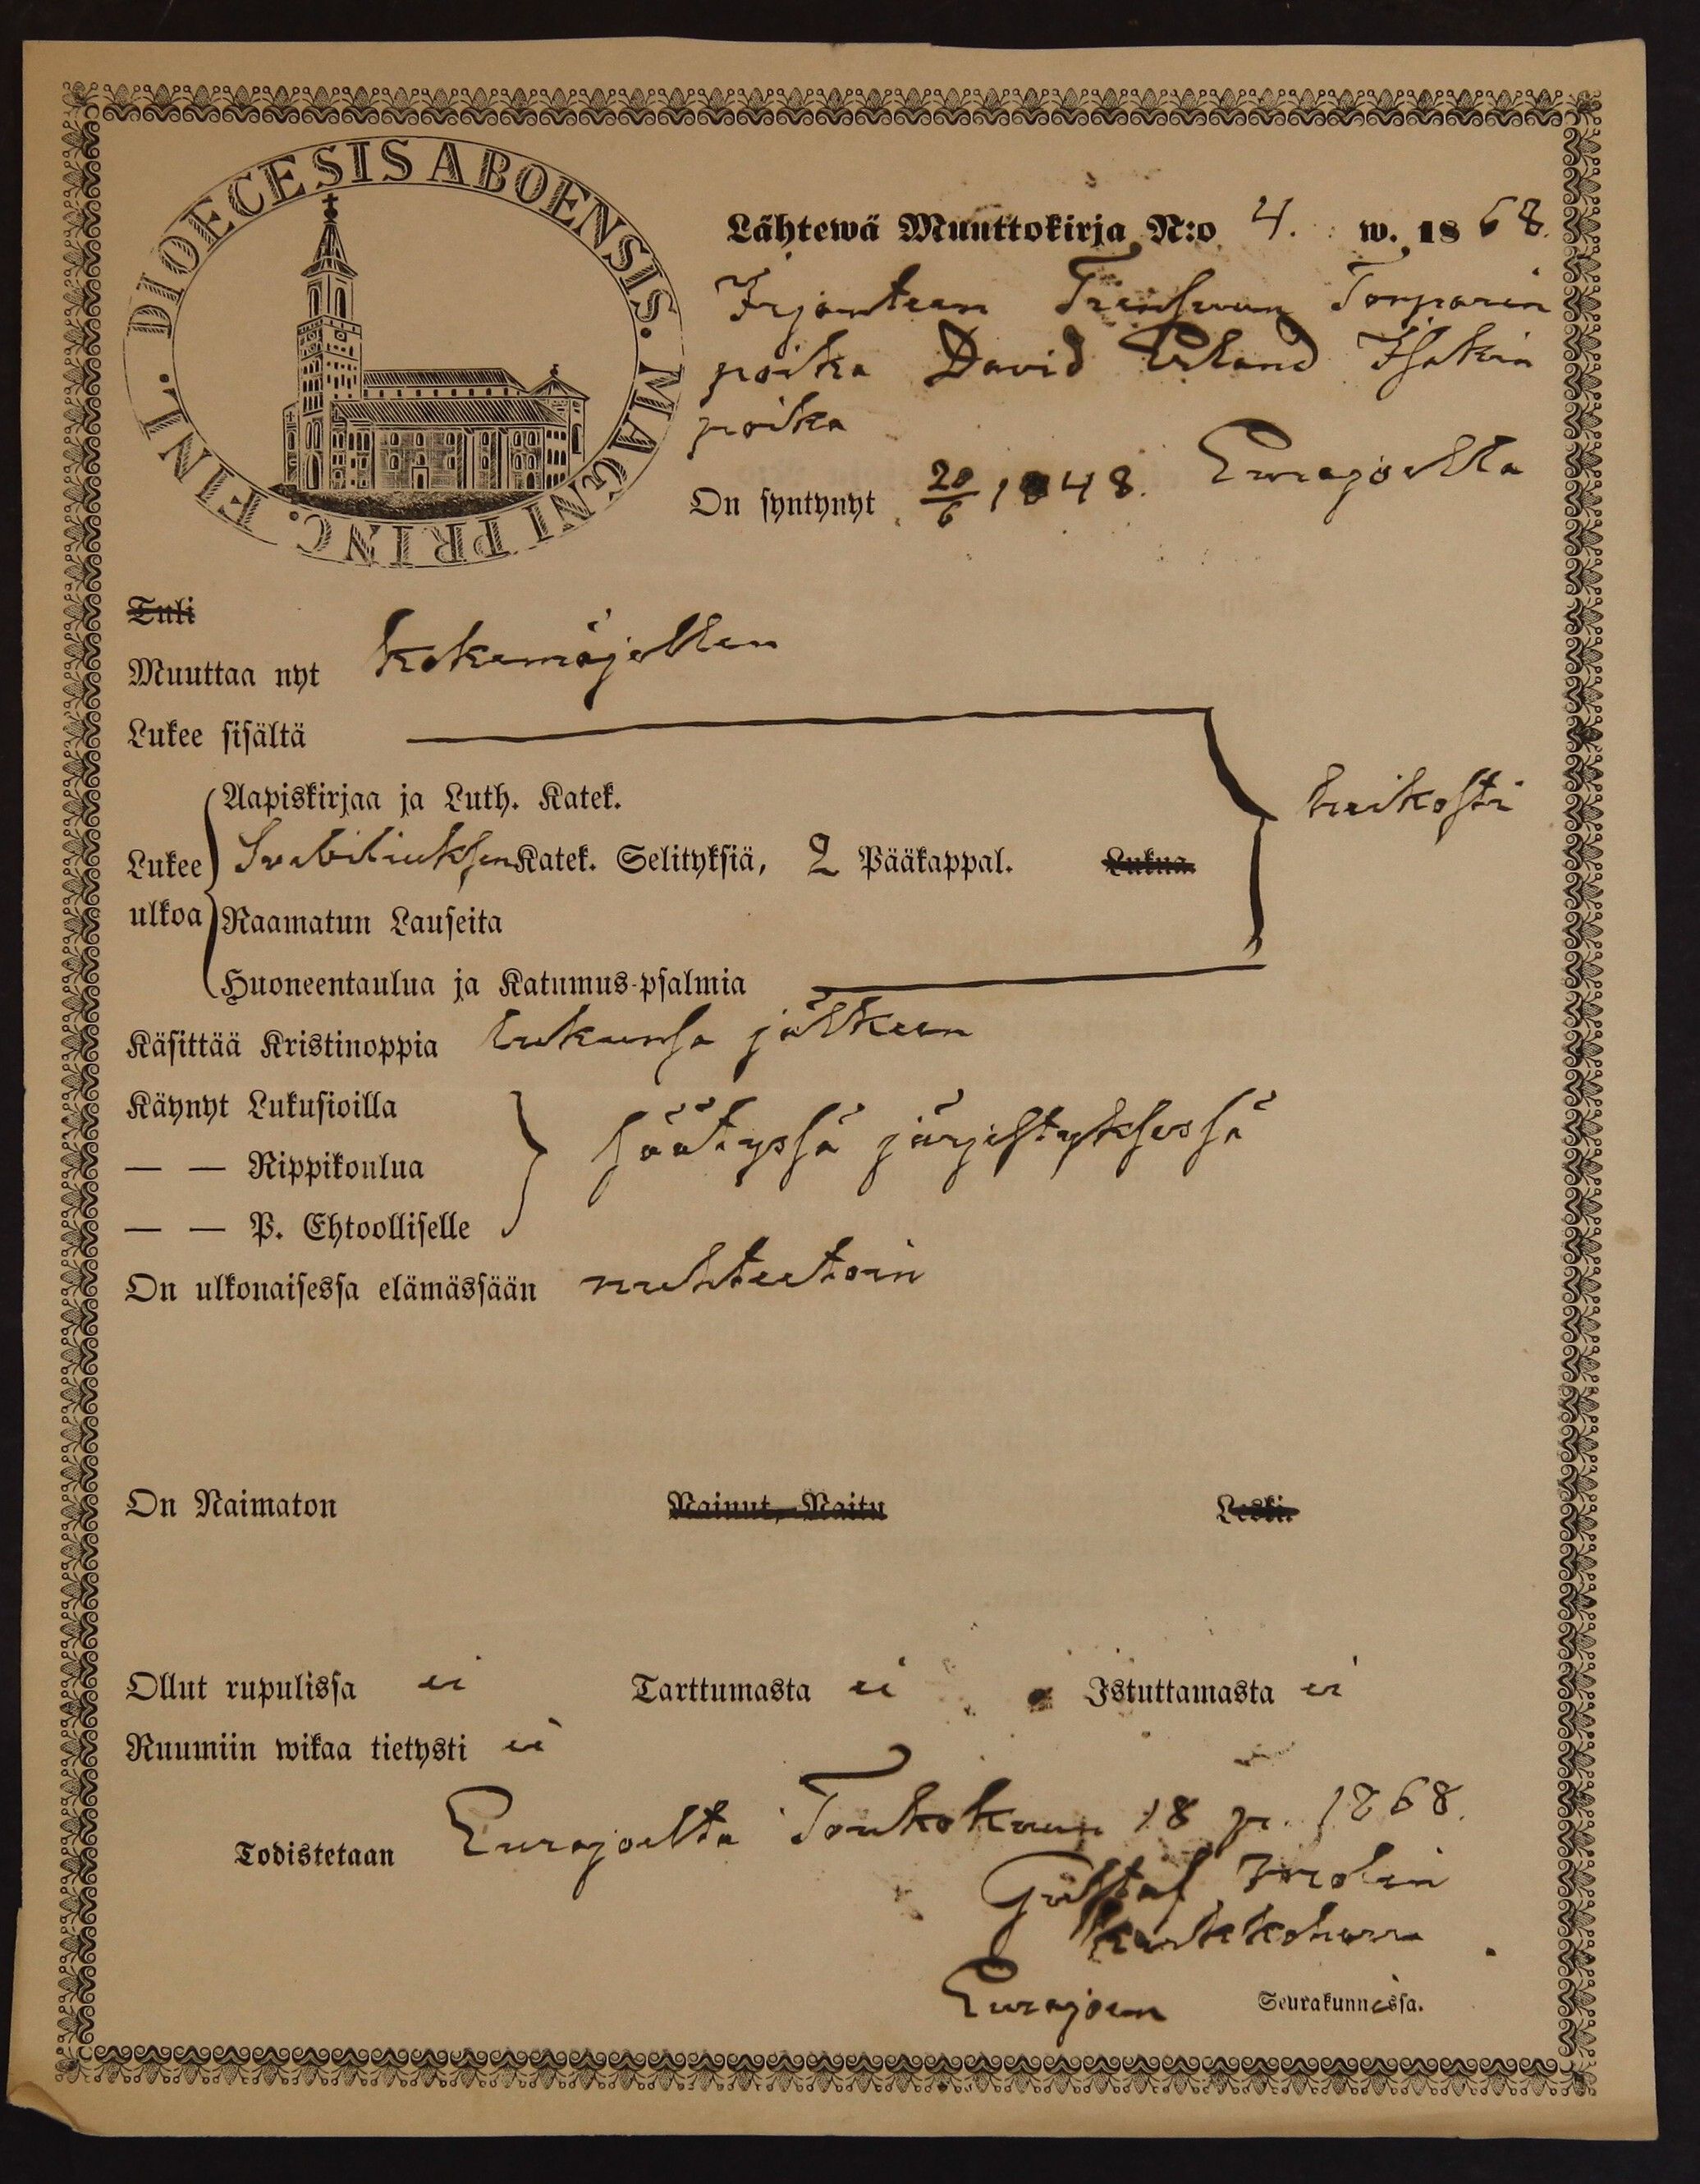 DIOECESIS ABOENSIS. MAGNI PRINC. FINL.
Lähtewä Muuttokirja N:o 4. w. 1868.
Irjanteen Torparin
poika David Erland Isakin
poika
On syntynyt 20/6 1848. Eurajoella
Tuli
Muuttaa nyt Kokemäjellen
Lukee sisältä
Aapiskirjaa ja Luth. Katek.
heikosti
Lukee Svebiliuksen Katek. Selityksiä, 2 Pääkappal. Lukua
ulkoa Raamatun Lauseita
Huoneentaulua ja Katumus-psalmia
Käsittää Kristinoppia lukunsa jälkeen
Käynyt Lukusioilla
säätyssä järjestyksessä
— — Rippikoulua
— — P. Ehtoolliselle
On ulkonaisessa elämässään nuhteetoin
On Naimaton Nainut, Naitu Leski.
Ollut rupulissa ei Tarttumasta ei Istuttamasta ei
Ruumiin wikaa tietysti ei
Todistetaan Eurajoelta Toukokuun 18 p. 1868.
Gustaf Molin
Kirkkoherra
Eurajoen Seurakunnassa.